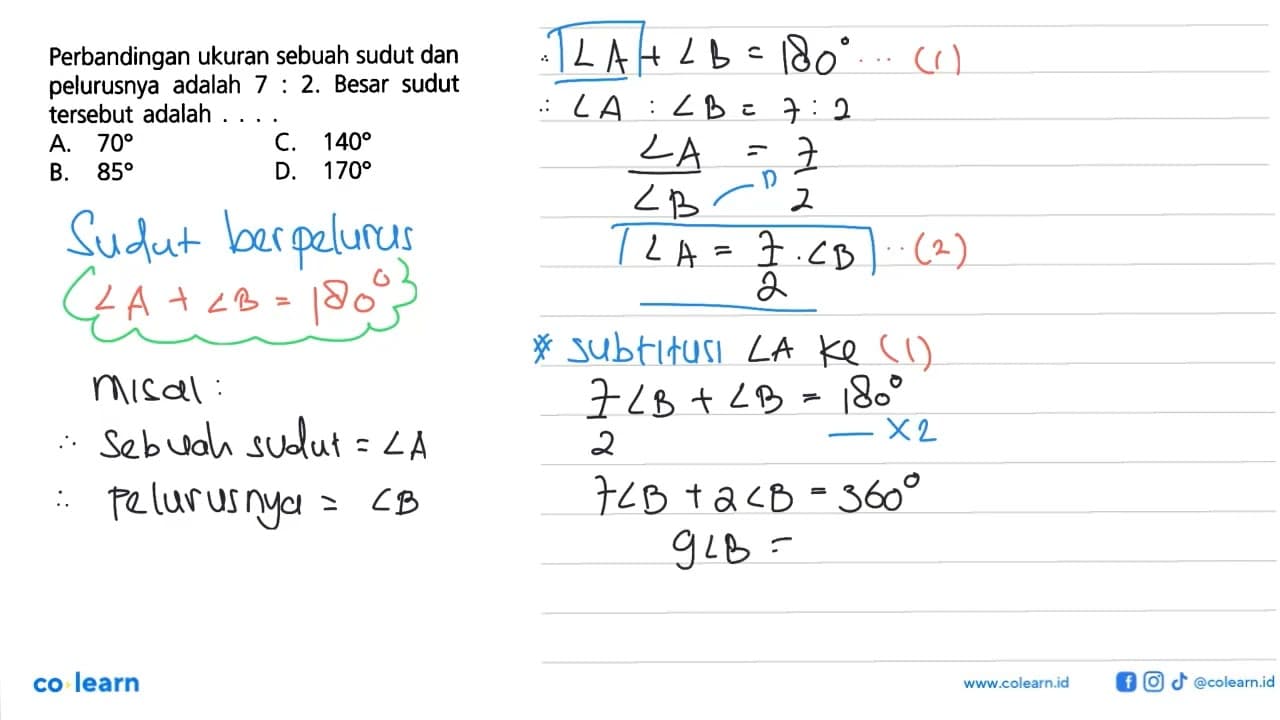 Perbandingan ukuran sebuah sudut dan
pelurusnya adalah 7 : 2. Besar sudut
tersebut adalah . . . .
A. 70° C. 140°
B. 85° D. 170°
Sudut berpelurus
∠A + ∠B = 180°
misal :
∴ Sebuah sudut = ∠A
∴ Pelurusnya = ∠B
∴ ∠A + ∠B = 180° ... (1)
∴ ∠A : ∠B = 7 : 2
∠A = 7
∠B 2
∠A = 7 . ∠B .. (2)
2
* subtitusi ∠A ke (1)
7∠B + ∠B = 180°
2 — ×2
7∠B + 2∠B = 360°
9∠B =
co learn
www.colearn.id
@colearn.id